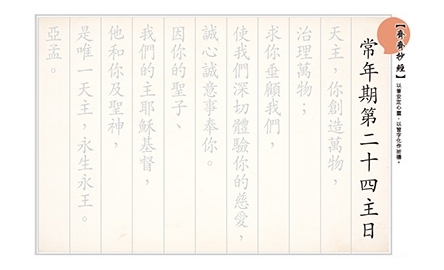 【齊齊抄經】
以筆安定心靈，以習字化作祈禱。
常年期第二十四主日
天主，你創造萬物，
治理萬物；
求你垂顧我們，
使我們深切體驗你的慈愛，
誠心誠意事奉你。
因你的聖子、
我們的主耶穌基督，
他和你及聖神，
是唯一天主，永生永王。
亞孟。